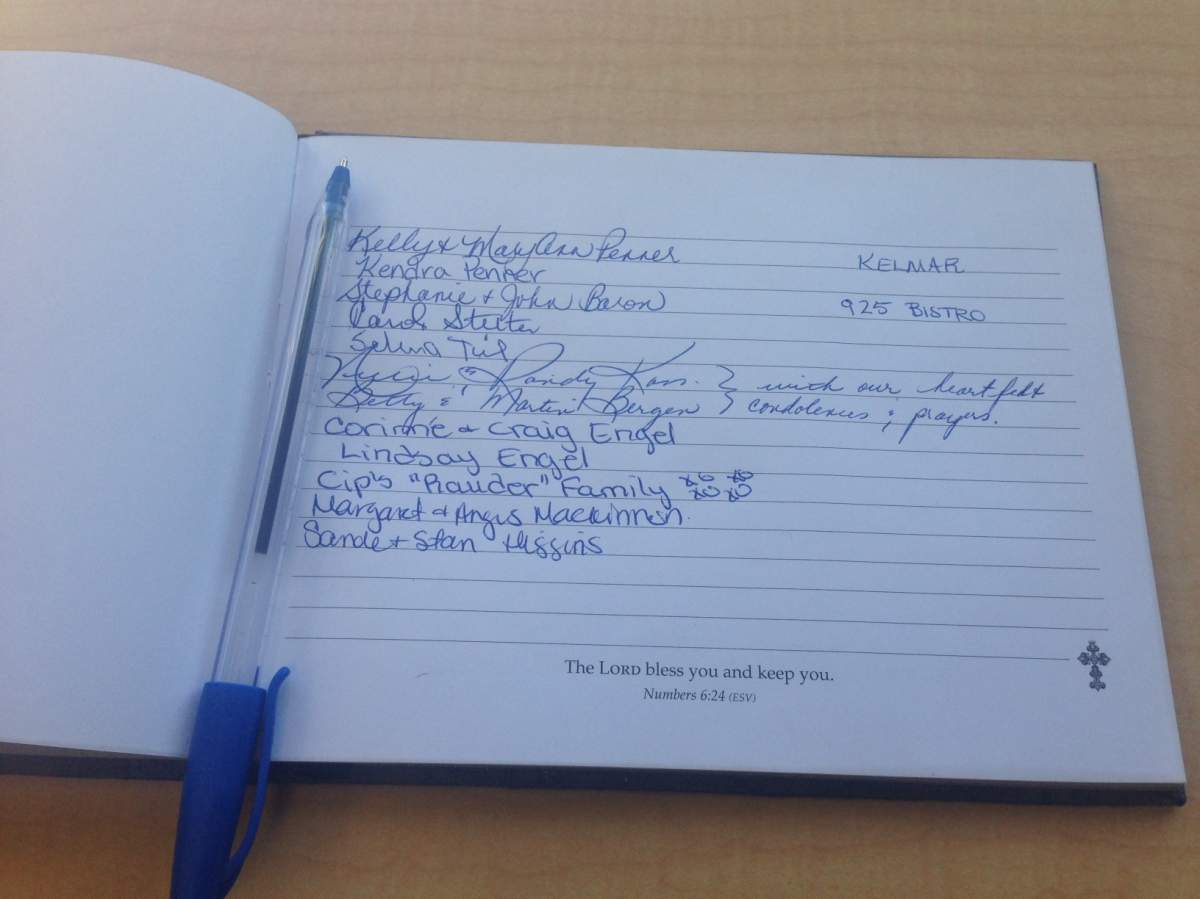 Kelly & MaryAnn Penner KELMAR
Kendra Penner
Stephanie + John Baron 925 BISTRO
Carol
Selma
& Randy } with our heartfelt
Betty & Martin Bergen } condolences & prayers.
Corinne & Craig Engel
Lindsay Engel
Cip's "Prauder" Family xo xo
xo xo
Margaret & Angus MacKinnon.
Sande + Stan Higgins
The LORD bless you and keep you.
Numbers 6:24 (ESV)